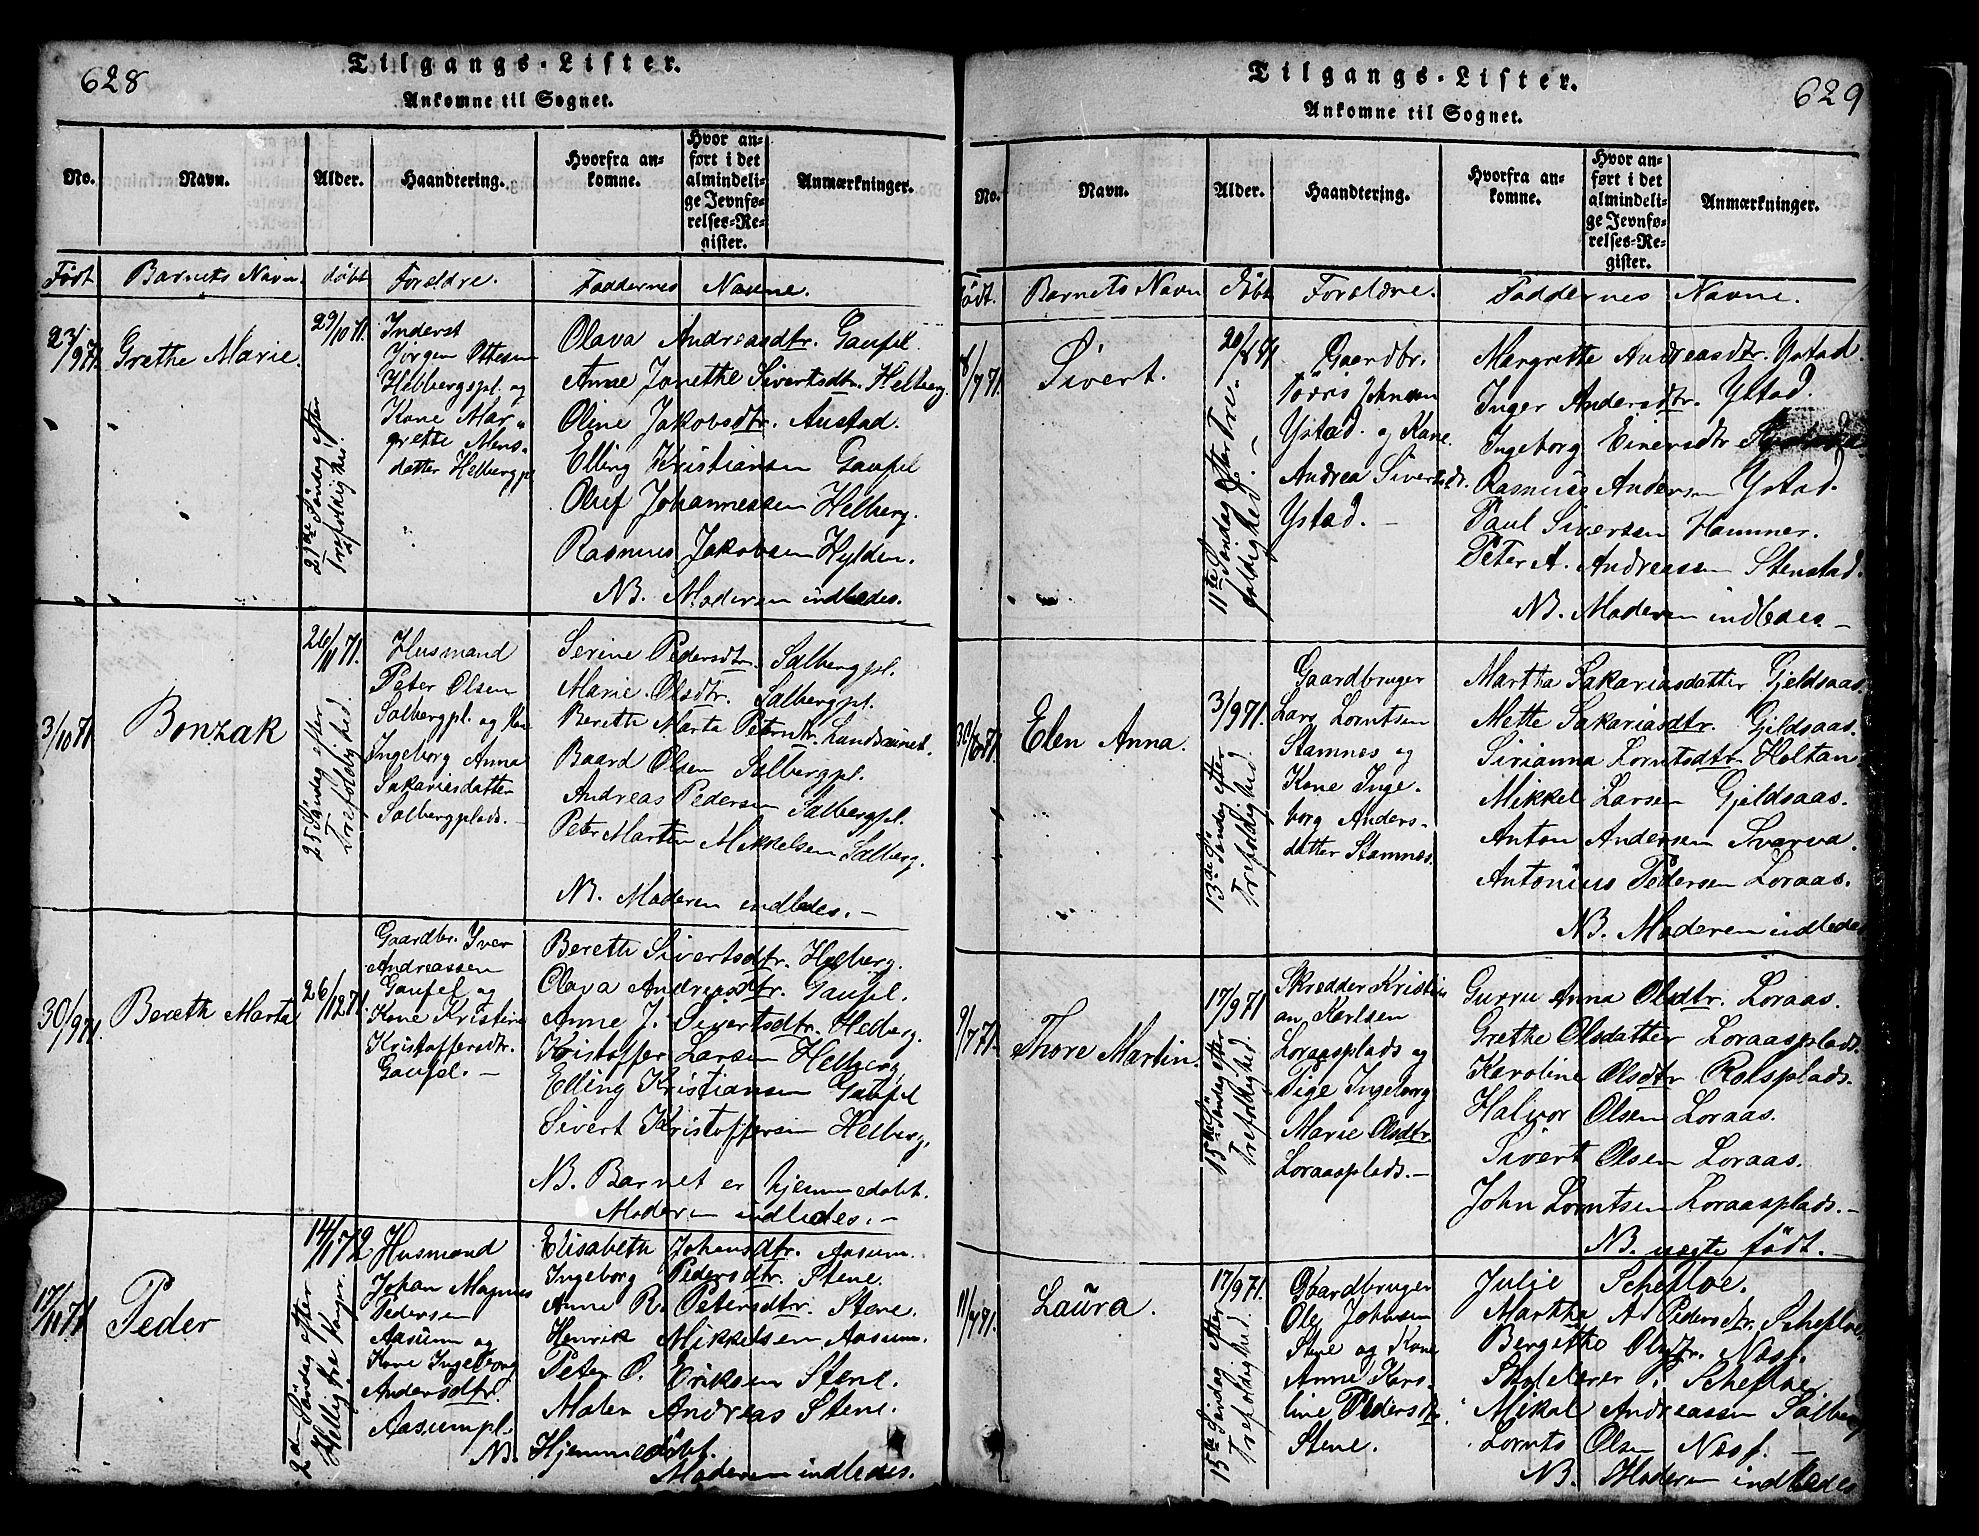 628
Tilgangs-Lister.
Ankomne til Sognet.
No.
Navn.
Alder.
Haandtering.
Hvorfra an-
komne.
Hvor an-
ført i det
almindeli-
ge Jevnfø-
relses-Re-
gister.
Anmærkninger.
Født
Barnets Navn.
döbt
Foreldre.
Faddernes Navne.
23/9 71.
Grethe Marie.
29/10 71.
21de Söndag efter
Trefoldighed.
Inderst
Jörgen Ottesen
Helbergspl. og
Kone Mar-
grette Mons-
datter Helbergpl.
Olava Andreasdtr. Gaupel.
Anne Jonethe Sivertsdtr. Helberg.
Oline Jakobsdtr. Austad.
Elling Kristiansen Gaupel
Oluf Johannessen Helberg.
Rasmus Jakobsen Hylden.
NB. Moderen indledes.
3/10 71
Bonzak
26/11 71.
25 Söndag efter
Trefoldighed.
Husmand
Peter Olsen
Salbergpl. og Kone
Ingeborg Anna
Sakariasdatter
Salbergplads.-
Serine Pedersdtr. Salbergpl.
Marie Olsdtr. Salbergpl.
Bereth Marta Petersdtr. Landsaunet.
Baard Olsen Salbergpl.
Andreas Pedersen Salbergpl.
Peter Martin Mikkelsen Salberg.
NB. Moderen indledes.-
30/9 71.
Bereth Marta
26/12 71.
Gaardbr. Iver
Andreassen
Gaupel og
Kone Kristine
Kristoffersdtr.
Gaupel.-
Bereth Sivertsdtr. Helberg.
Olava Andreasdtr. Gaupel.
Anne J. Sivertsdtr. Helberg.
Kristoffer Larsen Helberg.
Elling Kristiansen Gaupel
Sivert Kristoffersen Helberg.
NB. Barnet er hjemmedöbt.
Moderen indledes.-
17/11 71
Peder
14/1 72
2den Söndag efter
Hellig tre Konger.
Husmand
Johan Magnus
Pedersen
Aasum og
Kone Ingeborg
Andersdtr.
Aasumpl.
Elisabeth Johansdtr. Aasum.
Ingeborg Pedersdtr. Stene.
Anne R. Petersdtr. Stene.
Henrik Mikkelsen Aasum.
Peter O. Eriksen Stene.
Maler Andreas Stene.
NB. Hjemmedöbt.
Moderen indledes.
629
Tilgangs-Lister.
Ankomne til Sognet.
No.
Navn.
Alder.
Haandtering.
Hvorfra an-
komne.
Hvor an-
ført i det
almindeli-
ge Jevnfø-
relses-Re-
gister.
Anmærkninger.
Födt.
Barnets Navn
Döbt
Forældre.
Faddernes Navne.
8/7 71.
Sivert.
20/8 71
11te Söndag efter Tre-
foldighed.-
Gaardbr.
Törris Johnsen
Ystad og Kone
Andrea Sivertsdtr.
Ystad.-
Margrette Andreasdtr. Ystad.
Inger Andersdtr. Ystad.
Ingeborg Einersdtr
Rasmus Andersen Ystad.
Paul Siversen Hammer.
Peter A. Andreassen Stenstad.
NB. Moderen indledes-
30/6 71.
Elen Anna.
3/9 71.
13de Söndag efter
Trefoldighed.
Gaardbruger
Lars Lorntsen
Stamnes og
Kone Inge-
borg Anders-
datter Stamnes.
Martha Sakariasdatter Gjeldsaas
Mette Sakariasdtr. Gjeldsaas.
Sirianna Lorntsdtr. Holtan
Mikkel Larsen Gjeldsaas.
Anton Andersen Svarva.
Antonius Pedersen Loraas.
NB. Moderen indledes
9/7 71.
Thore Martin.
17/9 71
15de Söndag efter
Trefoldighed.
Skredder Kristi-
an Karlsen
Loraasplads og
Pige Ingeborg
Marie Olsdtr.
Loraasplads.-
Gurru Anna Olsdtr. Loraas.
Grethe Olsdatter Loraasplads.
Karoline Olsdtr Rolsplads.
Halvor Olsen Loraas.
Sivert Olsen Loraas.
John Lorntsen Loraasplads.-
NB. uegte födt.-
11/7 71.
Laura.
17/9 71.
15de Söndag efter
Trefoldighed.
Gaardbruger
Ole Johnsen
Stene og Kone
Anne Karo-
line Pedersdtr.
Stene.
Julie Schefloe.
Martha A Pedersdtr. Schefloe.
Bergitte Olsdtr. Næss.
Skolelærer Schefloe
Mikal Andreassen Salberg
Lornts Olsen Næss.-
NB. Moderen indledes